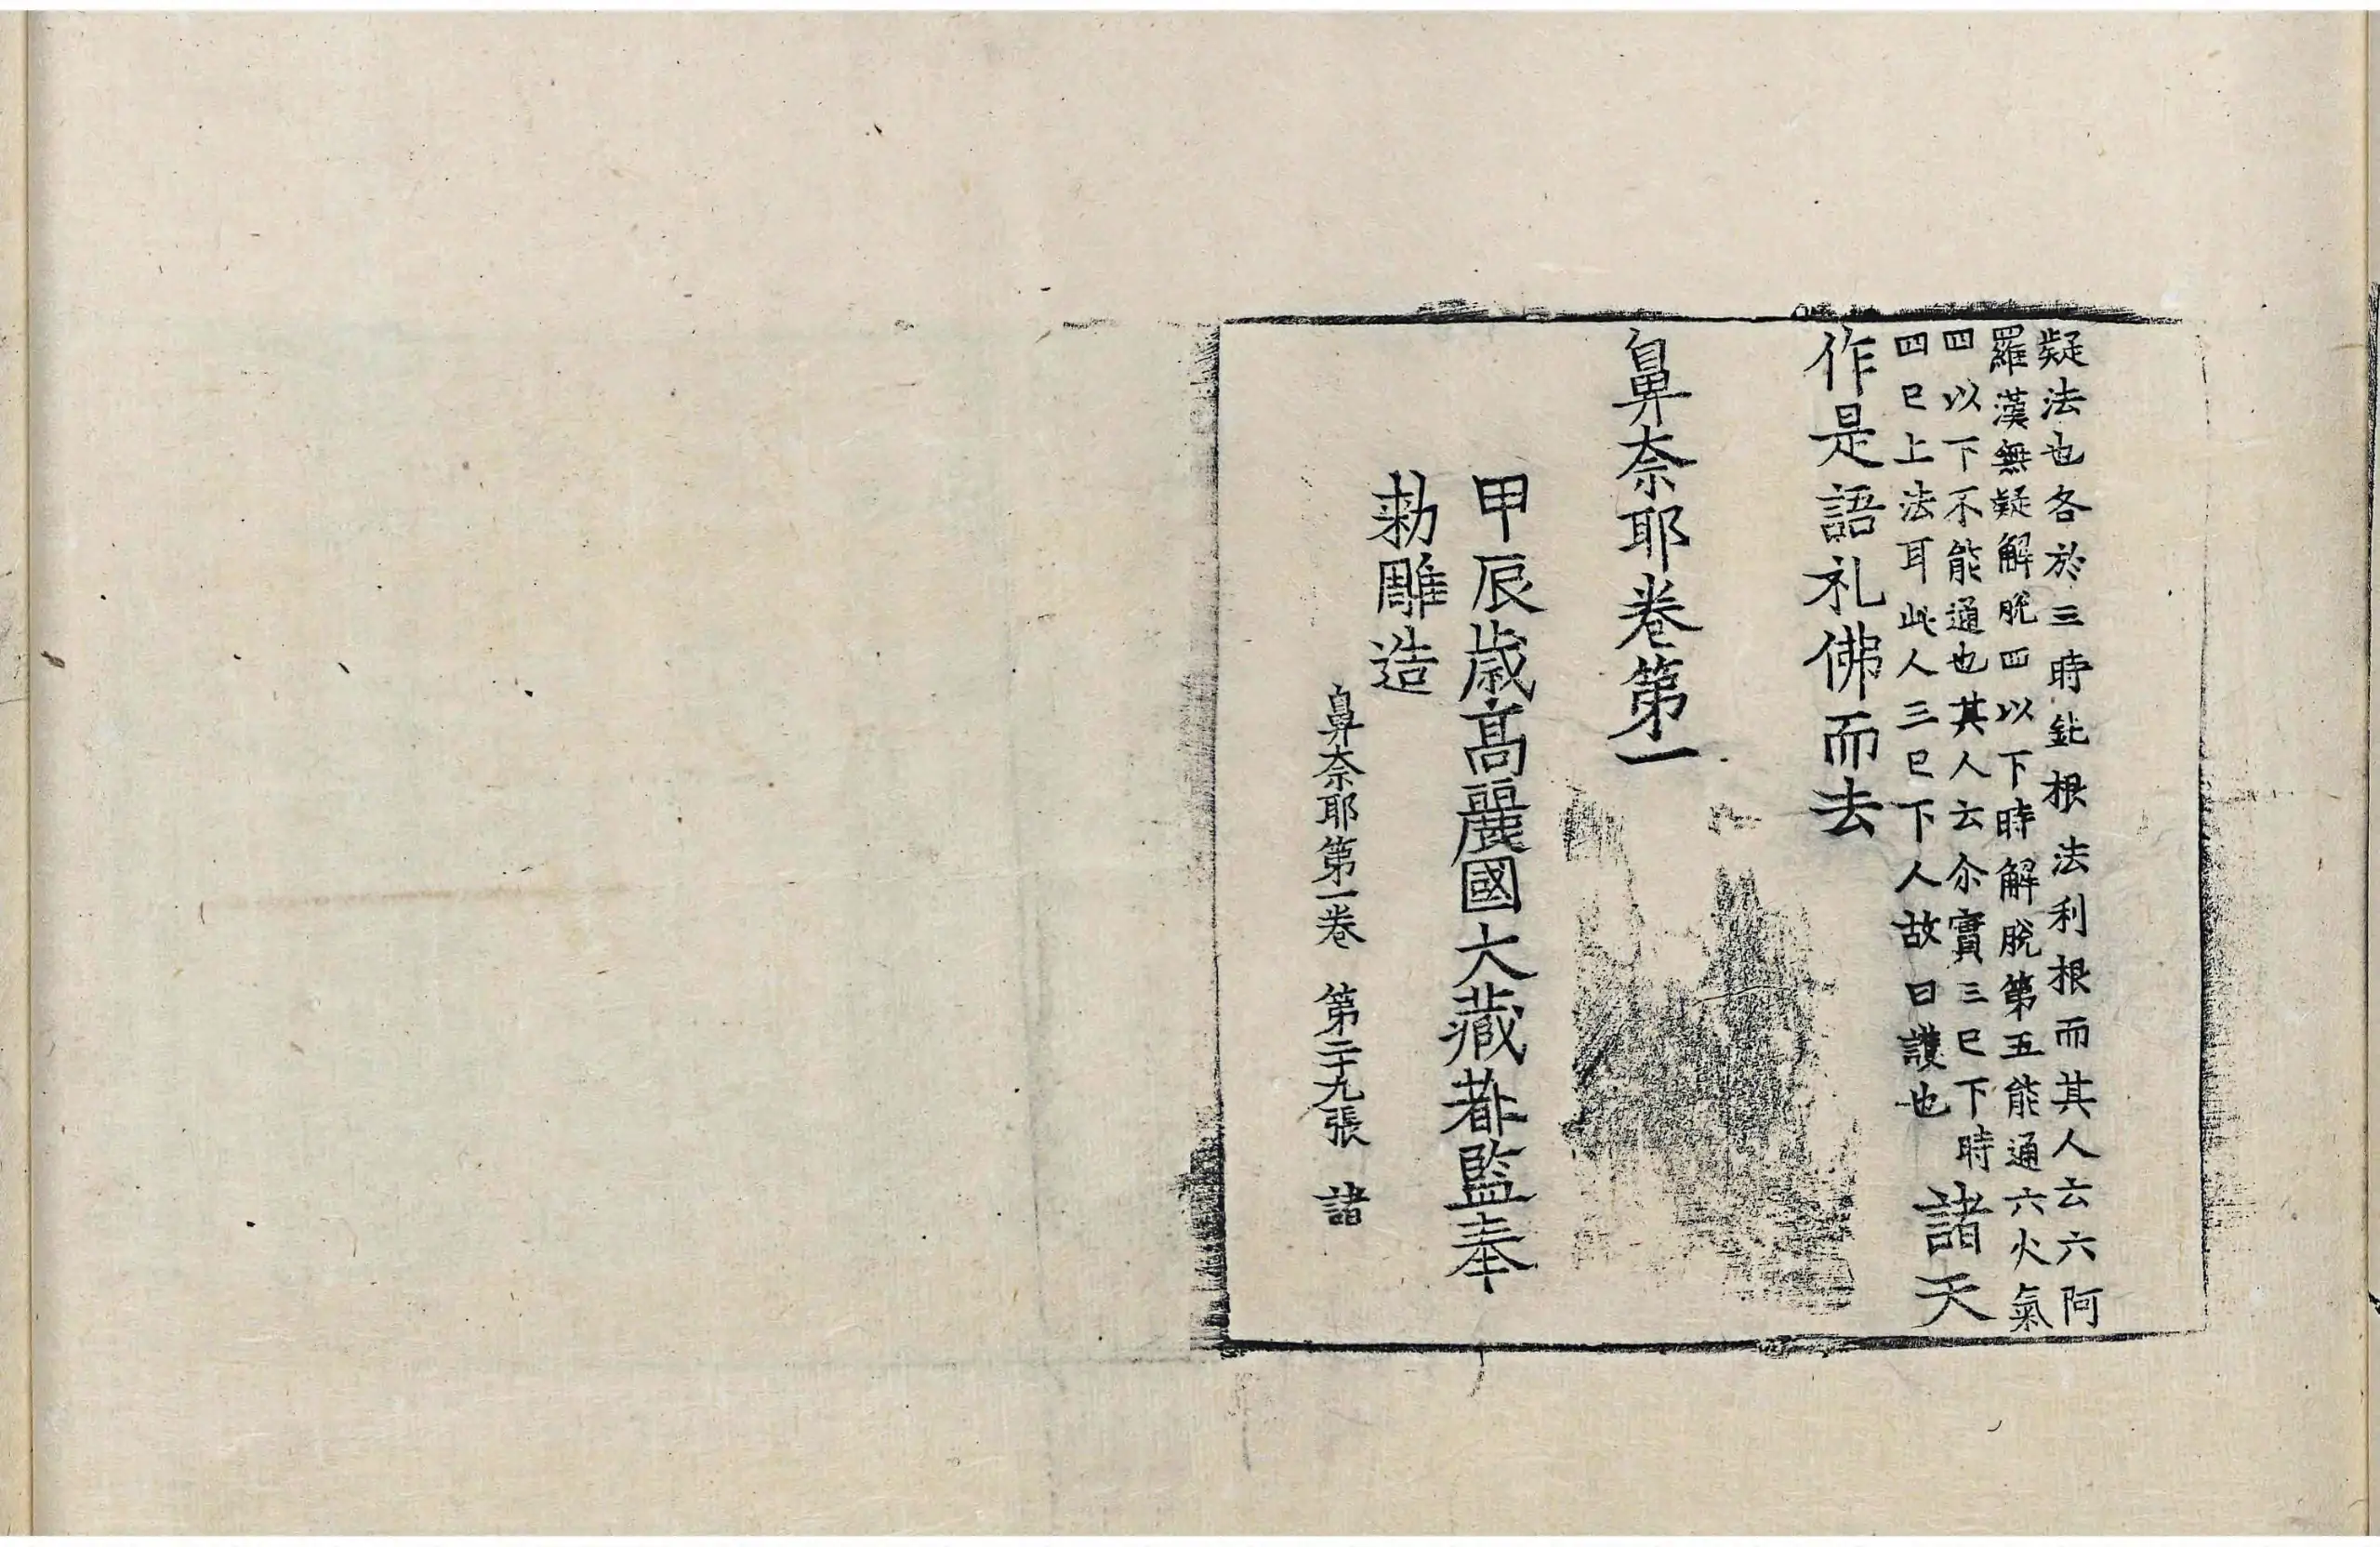 疑法也各於三時鈍根法利根而其人云六阿
羅漢無疑解脫四以下時解脫第五能通六火氣
四以下不能通也其人云尒實三已下時
四已上法耳此人三已下人故曰護也
諸天
作是語礼佛而去
鼻奈耶卷第一
甲辰歲高麗國大藏都監奉
勑雕造
鼻奈耶第一卷 第二十九張 諸